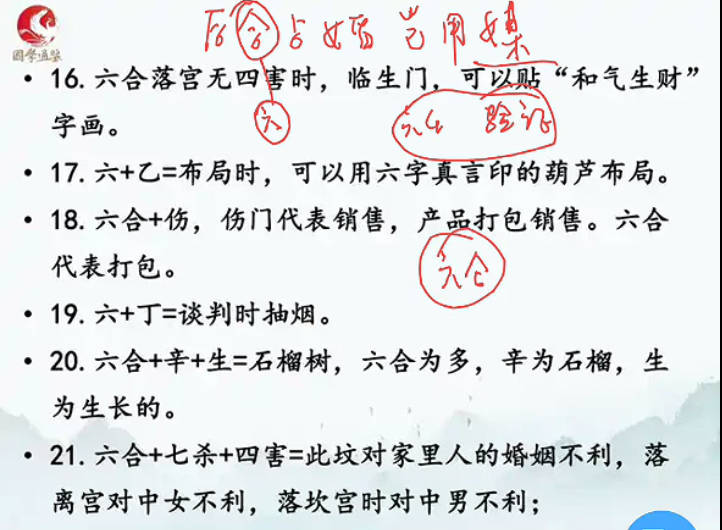 后合占婚岂用媒
國學通鑒
• 16. 六合落宫无四害时，临生门，可以贴“和气生财”
字画。
六
六合 验证
• 17. 六+乙=布局时，可以用六字真言印的葫芦布局。
• 18. 六合+伤，伤门代表销售，产品打包销售。六合
代表打包。
六合
• 19. 六+丁=谈判时抽烟。
• 20. 六合+辛+生=石榴树，六合为多，辛为石榴，生
为生长的。
• 21. 六合+七杀+四害=此坟对家里人的婚姻不利，落
离宫对中女不利，落坎宫时对中男不利；